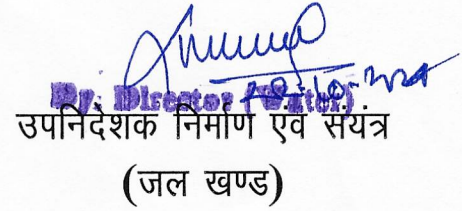 Dy. Director (Water)
उपनिदेशक निर्माण एवं संयंत्र
(जल खण्ड)